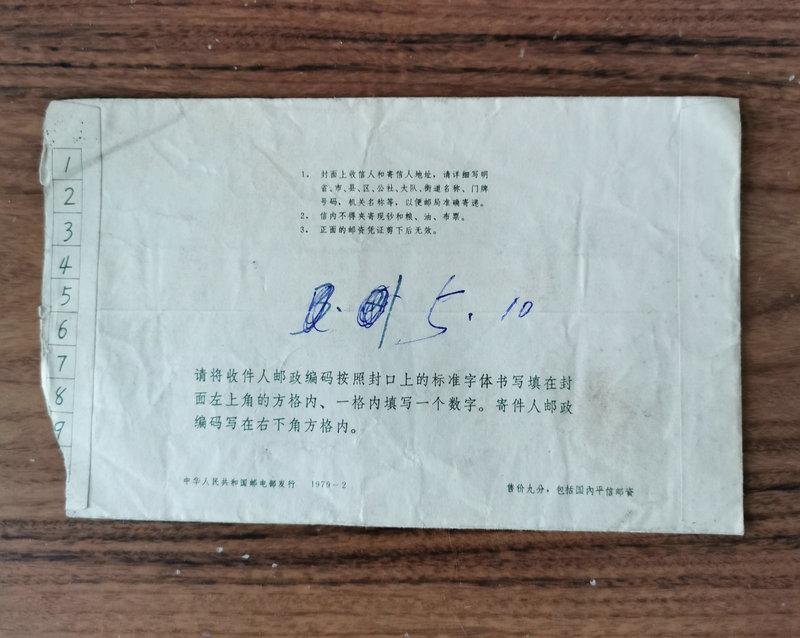 1
2
3
4
5
6
7
8
9
1. 封面上收信人和寄信人地址,请详细写明
省、市、县、区、公社、大队、街道名称、门牌
号码,机关名称等,以便邮局准确寄递。
2. 信内不得夹寄现钞和粮、油、布票。
3. 正面的邮资凭证剪下后无效。
5. 10
请将收件人邮政编码按照封口上的标准字体书写填在封
面左上角的方格内、一格内填写一个数字。寄件人邮政
编码写在右下角方格内。
中华人民共和国邮电部发行 1979-2
售价九分,包括国内平信邮资